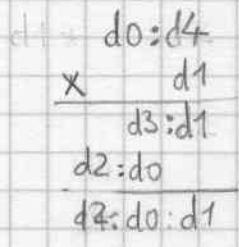 d0:d4
x d1
d3:d1
d2:d0
d2:d0:d1